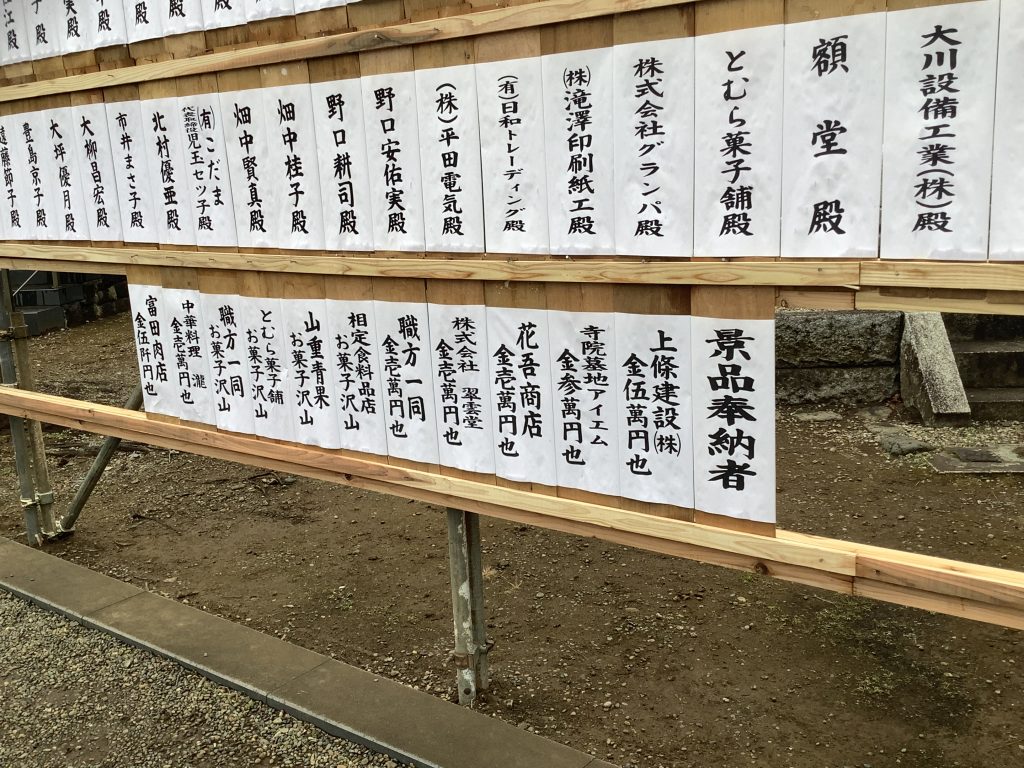 大川設備工業(株)殿
額堂殿
とむら菓子舗殿
株式会社グランパ殿
(株)滝澤印刷紙工殿
(有)日和トレーディング殿
(株)平田電気殿
野口安佑実殿
野口耕司殿
畑中桂子殿
畑中賢真殿
(有)こだま
代表取締役児玉セツ子殿
北村優亜殿
市井まさ子殿
大柳昌宏殿
大坪優月殿
豊島京子殿
遠藤節子殿
景品奉納者
上條建設(株)
金伍萬円也
寺院墓地アイエム
金参萬円也
花吾商店
金壱萬円也
株式会社 翠雲堂
金壱萬円也
職方一同
金壱萬円也
相定食料品店
お菓子沢山
山重青果
お菓子沢山
とむら菓子舗
お菓子沢山
職方一同
お菓子沢山
中華料理 瀧
金壱萬円也
富田肉店
金伍阡円也